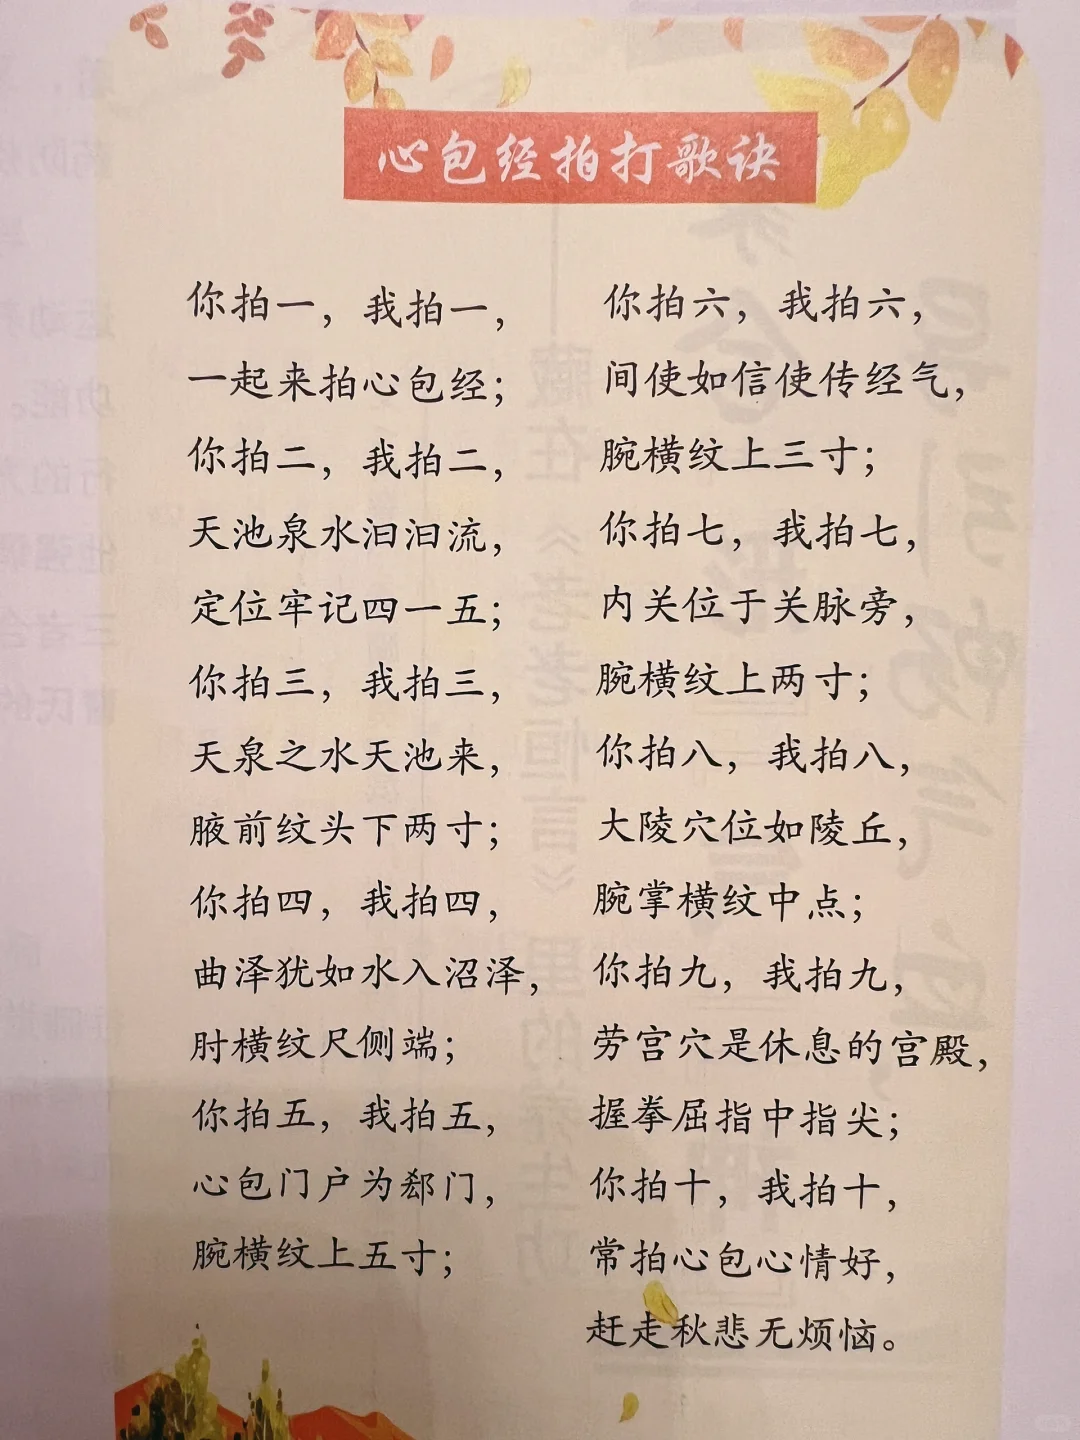 心包经拍打歌诀
你拍一，我拍一，
一起来拍心包经；
你拍二，我拍二，
天池泉水汩汩流，
定位牢记四一五；
你拍三，我拍三，
天泉之水天池来，
腋前纹头下两寸；
你拍四，我拍四，
曲泽犹如水入沼泽，
肘横纹尺侧端；
你拍五，我拍五，
心包门户为郄门，
腕横纹上五寸；
你拍六，我拍六，
间使如信使传经气，
腕横纹上三寸；
你拍七，我拍七，
内关位于关脉旁，
腕横纹上两寸；
你拍八，我拍八，
大陵穴位如陵丘，
腕掌横纹中点；
你拍九，我拍九，
劳宫穴是休息的宫殿，
握拳屈指中指尖；
你拍十，我拍十，
常拍心包心情好，
赶走秋悲无烦恼。